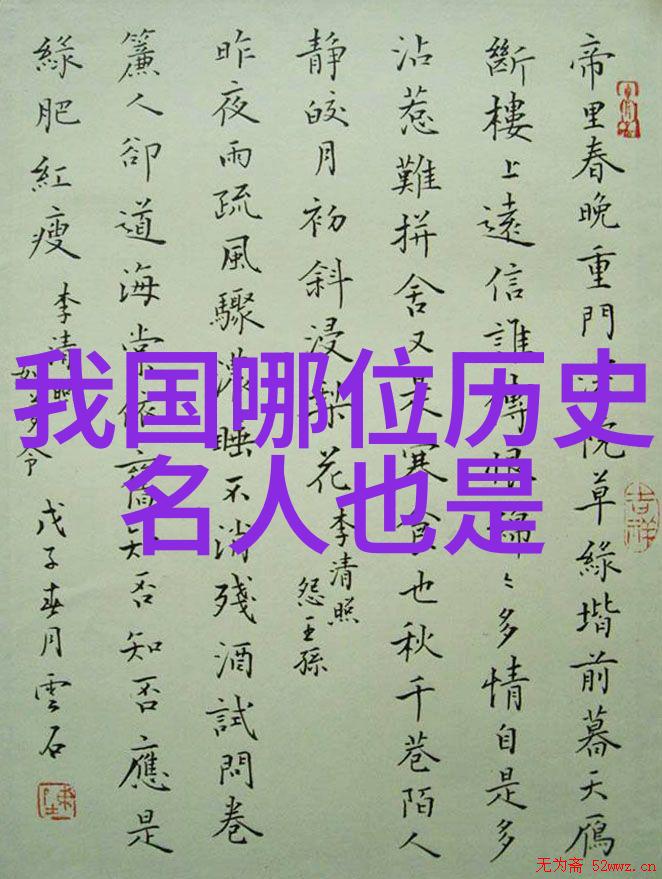 我国哪位历史
名人也是
帝里春晚重門 院草綠堦前暮天鴈
斷樓上遠信誰 恨綿〻多情自是多
沾惹難拼舍又是寒食也秋千巷陌人
靜皎月初斜浸梨花
李清照
怨王孫
昨夜雨疏風驟濃睡不消殘酒試問卷
簾人卻道海棠依舊知否知否應是
綠肥紅瘦
李清照
如夢令
戊子春月雲石
吉祥
无为斋 52wwz.cn